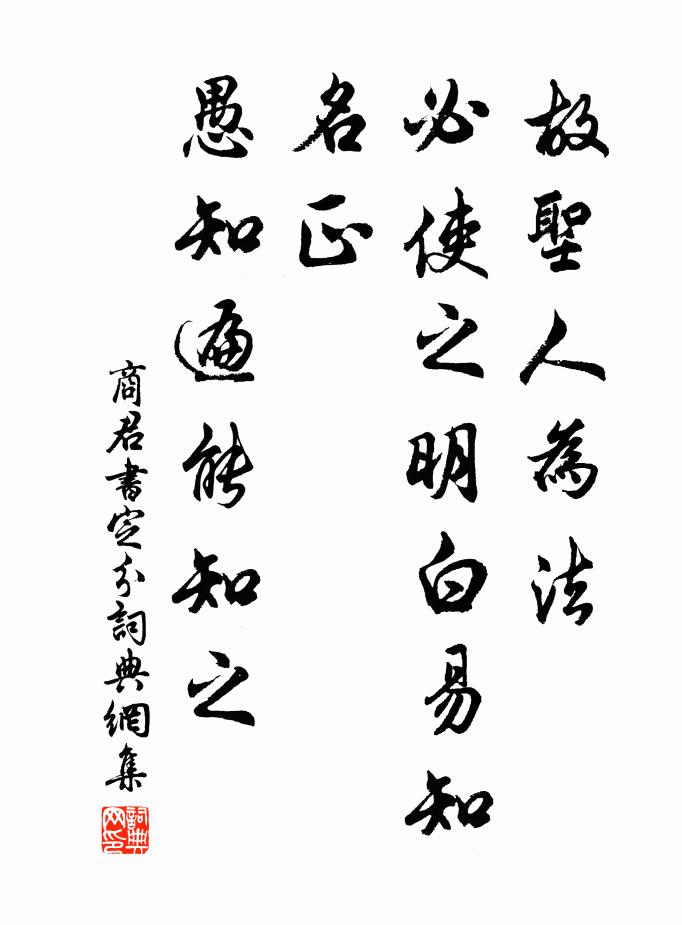 故聖人為法
必使之明白易知
名正
愚知遍能知之
商君書定分詞典網集
詞典
网印